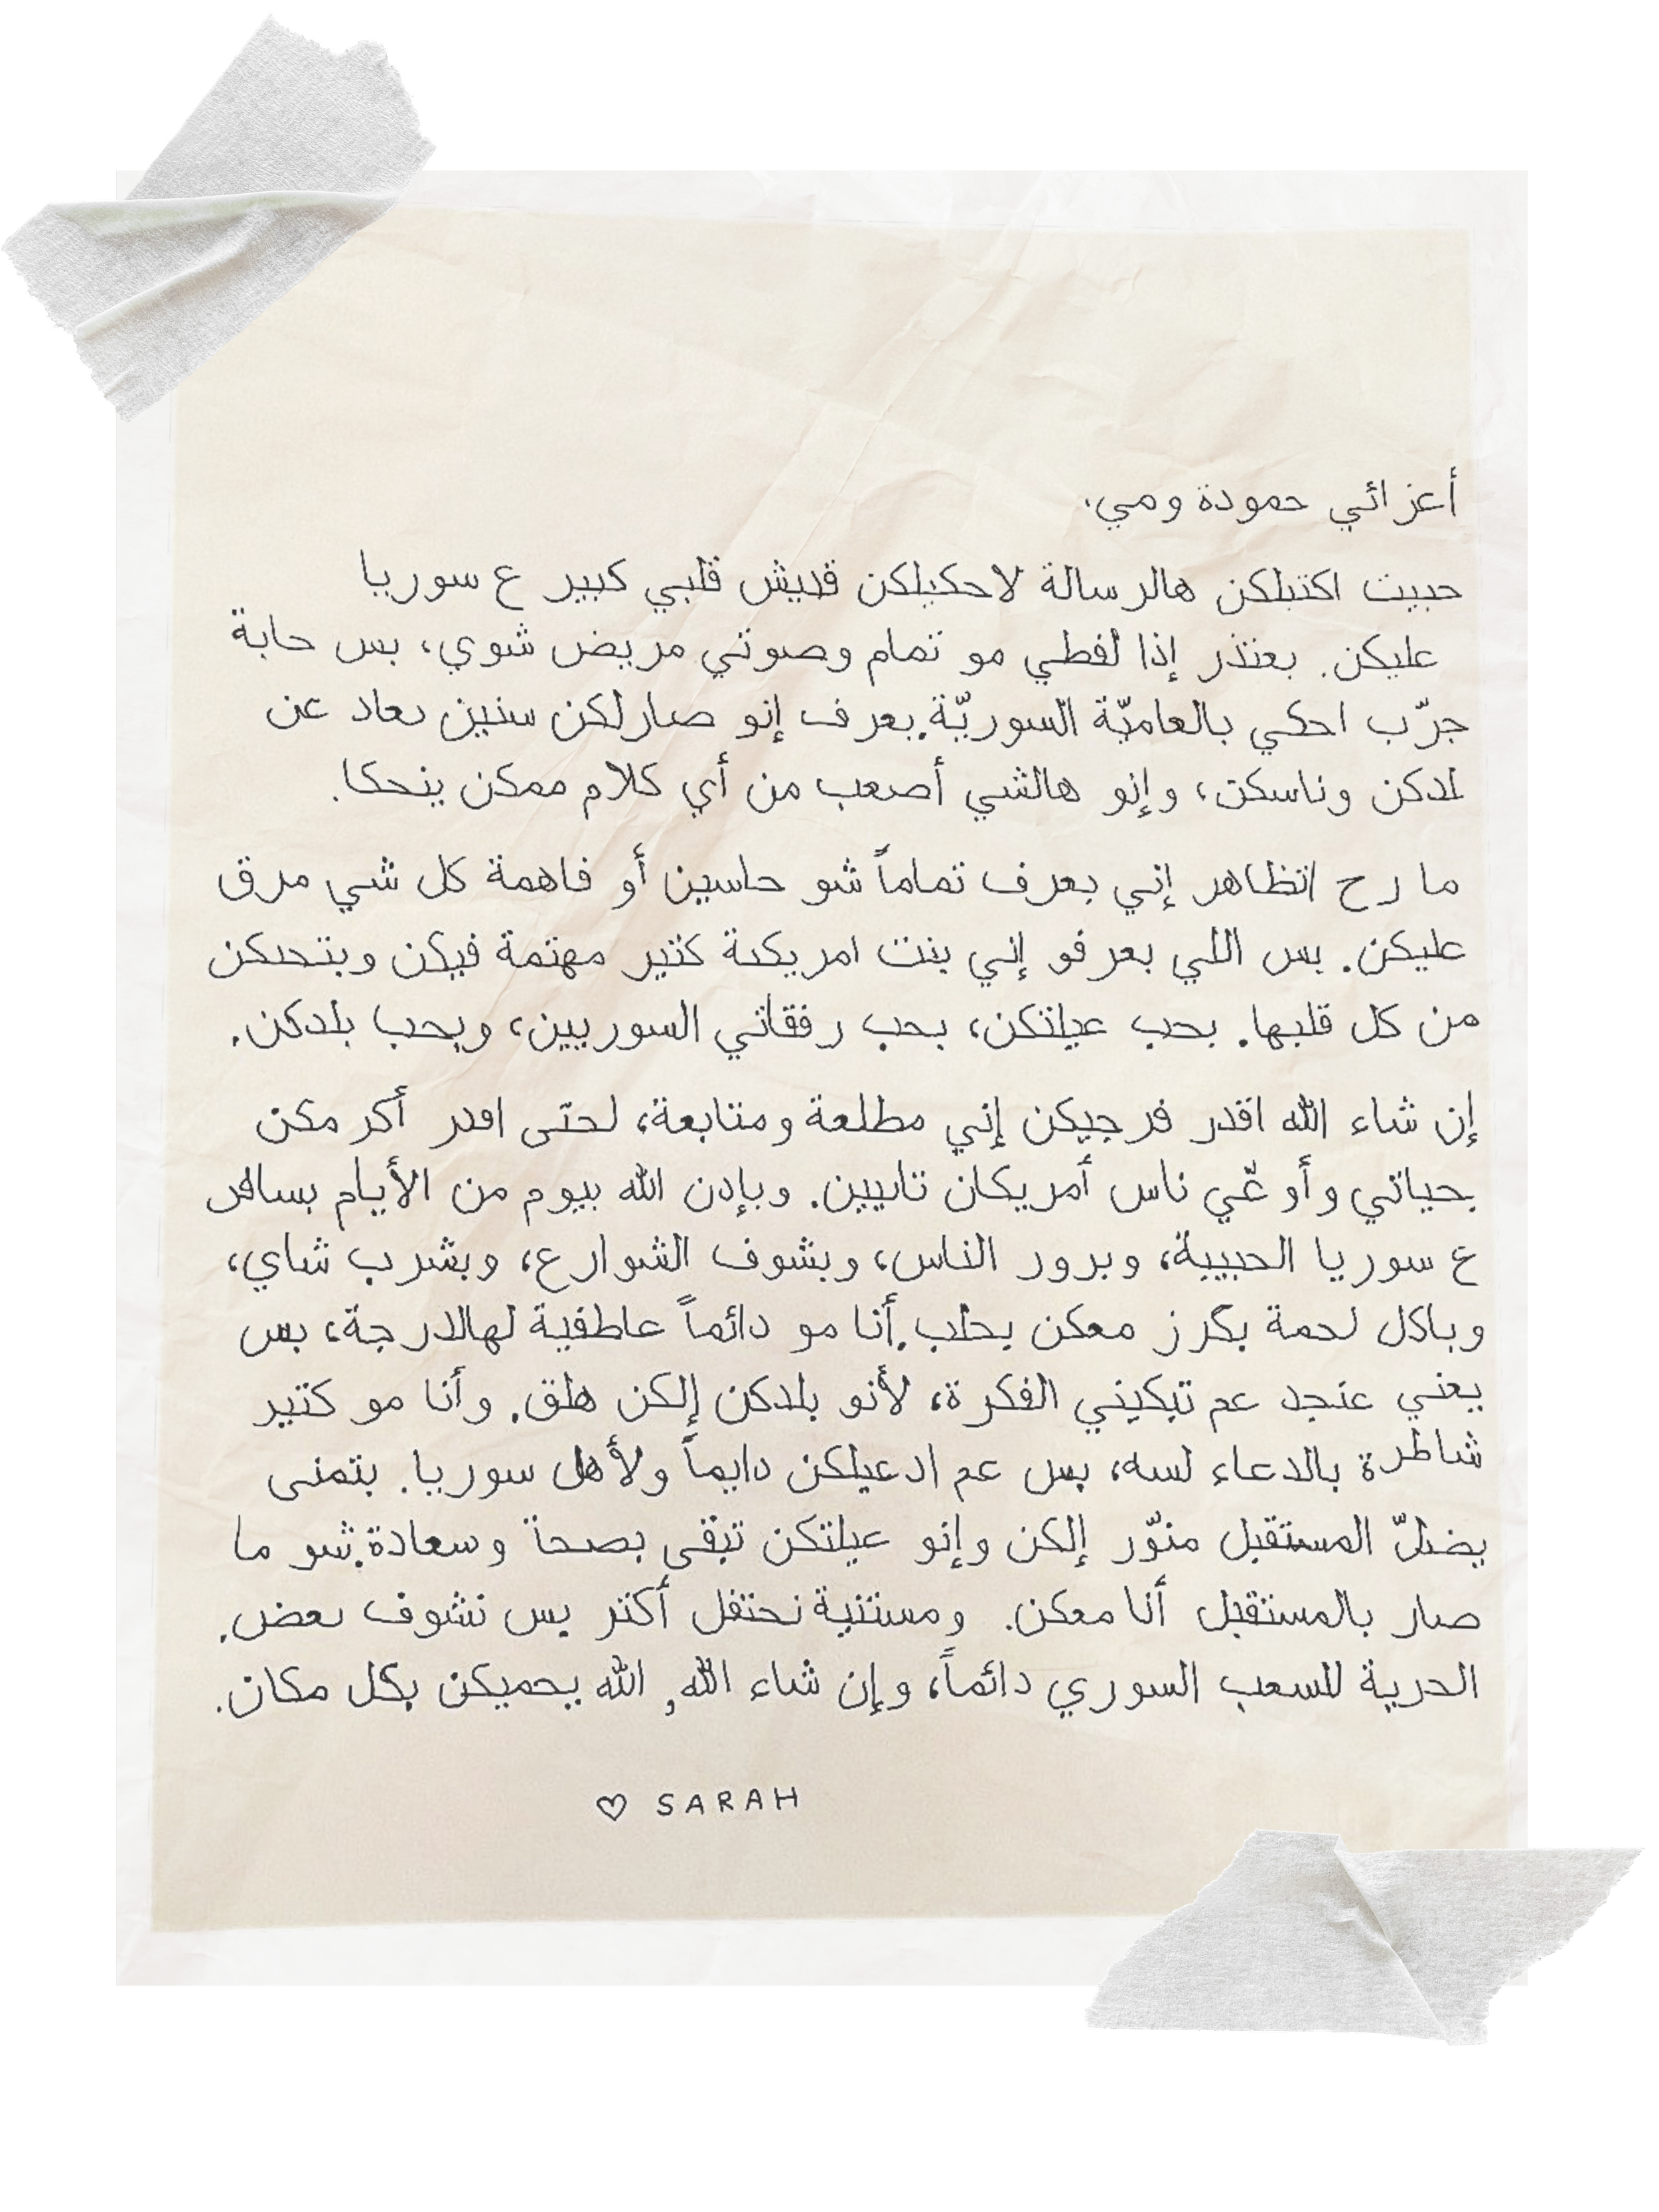 أعزائي حمودة ومي،
حبيت اكتبلكن هالرسالة لاحكيلكن قديش قلبي كبير ع سوريا
عليكن. بعتذر إذا لفظي مو تمام وصوتي مريض شوي، بس حابة
جرّب احكي بالعاميّة السوريّة. بعرف إنو صارلكن سنين بعاد عن
بلدكن وناسكن، وإنو هالشي أصعب من أي كلام ممكن ينحكا.
ما رح اتظاهر إني بعرف تماماً شو حاسين أو فاهمة كل شي مرق
عليكن. بس اللي بعرفو إني بنت امريكية كتير مهتمة فيكن وبتحبكن
من كل قلبها. بحب عيلتكن، بحب رفقاتي السوريين، وبحب بلدكن.
إن شاء الله اقدر فرجيكن إني مطلعة ومتابعة، لحتى اقدر أكرمكن
بحياتي وأوعّي ناس أمريكان تانيين. وبإذن الله بيوم من الأيام بسافر
ع سوريا الحبيبة، وبزور الناس، وبشوف الشوارع، وبشرب شاي،
وباكل لحمة بكرز معكن بحلب. أنا مو دائماً عاطفية لهالدرجة، بس
يعني عنجد عم تبكيني الفكرة، لأنو بلدكن إلكن هلق. وأنا مو كتير
شاطرة بالدعاء لسه، بس عم ادعيلكن دايماً ولأهل سوريا. بتمنى
يضلّ المستقبل منوّر إلكن وإنو عيلتكن تبقى بصحة وسعادة. شو ما
صار بالمستقبل أنا معكن. ومستنية نحتفل أكتر بس نشوف بعض.
الحرية للشعب السوري دائماً، وإن شاء الله, الله يحميكن بكل مكان.
♡ SARAH